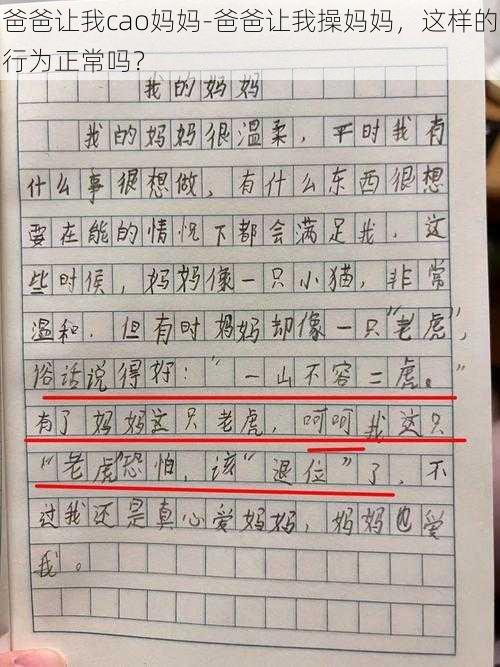 爸爸让我cao妈妈-爸爸让我操妈妈，这样的
行为正常吗？
我的妈妈
我的妈妈很温柔，平时我有
什么事很想做，有什么东西很想
要在能的情况下都会满足我，这
些时候，妈妈像一只小猫，非常
温和．但有时妈妈却像一只“老虎”，
俗话说得好：“一山不容二虎。”
有了妈妈这只老虎，呵呵我这只
“老虎”恐怕，该“退位”了，不
过我还是真心爱妈妈，妈妈也爱
我。